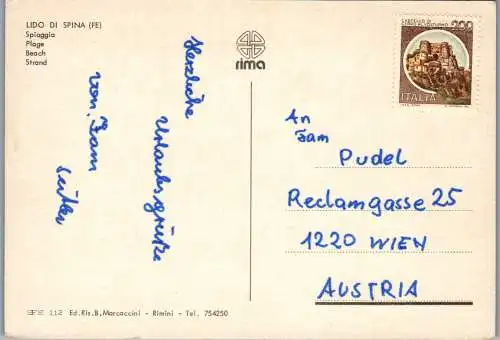 LIDO DI SPINA (FE)
Spiaggia
Plage
Beach
Strand
rima
200
ITALIA
Herzliche
Urlaubsgrüße
von. Fam
An
Fam
Pudel
Reclamgasse 25
1220 WIEN
AUSTRIA
112 Ed. Ris. B. Marcaccini - Rimini - Tel. 754250